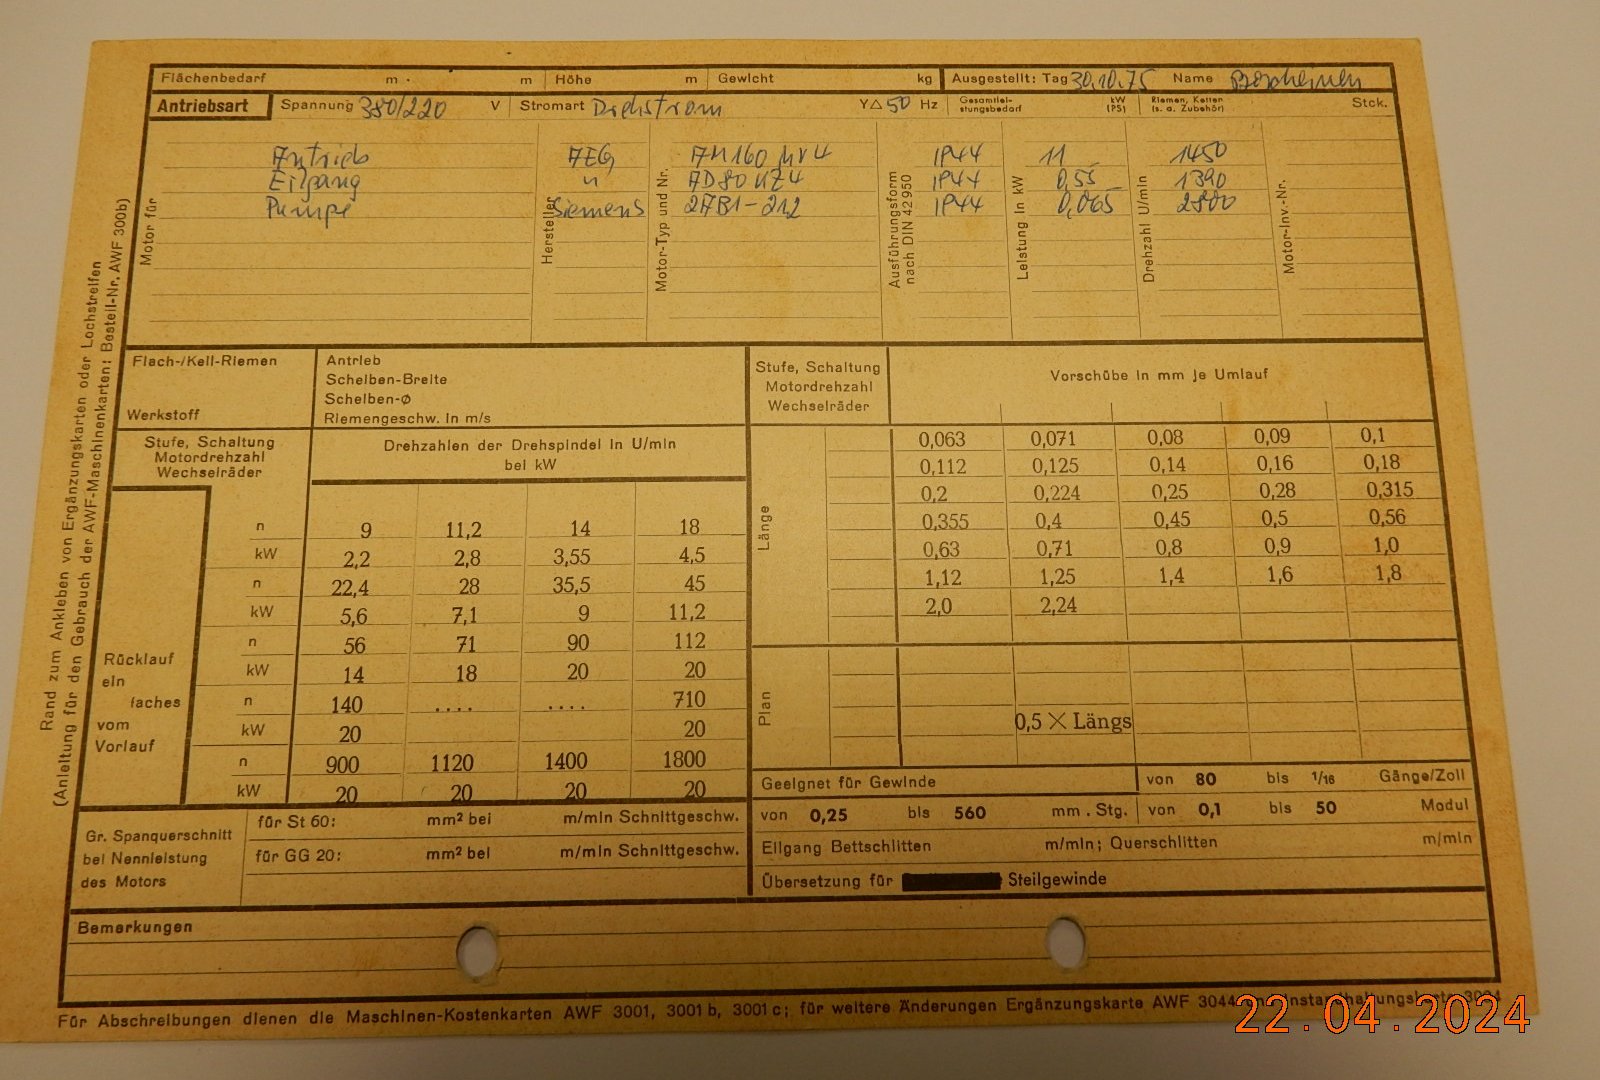 Flächenbedarf m · m Höhe m Gewicht kg Ausgestellt: Tag 30.10.75 Name
Antriebsart Spannung 380/220 V Stromart Drehstrom Y△ 50 Hz Gesamtlei-stungsbedarf kW (PS) Riemen, Ketten (s. a. Zubehör) Stck.
Motor für Hersteller Motor-Typ und Nr. Ausführungsform nach DIN 42 950 Leistung in kW Drehzahl U/min Motor-Inv.-Nr.
Antrieb AEG AM160 MV4 IP44 11 1450
Eilgang " AD80 NZ4 IP44 0,55 1390
Pumpe Siemens 2AB1-212 IP44 0,065 2800
Flach-/Keil-Riemen
Werkstoff
Antrieb
Scheiben-Breite
Scheiben-Ø
Riemengeschw. in m/s
Stufe, Schaltung
Motordrehzahl
Wechselräder
Drehzahlen der Drehspindel in U/min
bei kW
n 9 11,2 14 18
kW 2,2 2,8 3,55 4,5
n 22,4 28 35,5 45
kW 5,6 7,1 9 11,2
n 56 71 90 112
kW 14 18 20 20
n 140 .... .... 710
kW 20 20
n 900 1120 1400 1800
kW 20 20 20 20
Rücklauf
ein
faches
vom
Vorlauf
Gr. Spanquerschnitt
bei Nennleistung
des Motors
für St 60: mm² bei m/min Schnittgeschw.
für GG 20: mm² bei m/min Schnittgeschw.
Stufe, Schaltung
Motordrehzahl
Wechselräder
Vorschübe in mm je Umlauf
Länge
0,063 0,071 0,08 0,09 0,1
0,112 0,125 0,14 0,16 0,18
0,2 0,224 0,25 0,28 0,315
0,355 0,4 0,45 0,5 0,56
0,63 0,71 0,8 0,9 1,0
1,12 1,25 1,4 1,6 1,8
2,0 2,24
Plan
0,5 × Längs
Geeignet für Gewinde von 80 bis 1/16 Gänge/Zoll
von 0,25 bis 560 mm . Stg. von 0,1 bis 50 Modul
Eilgang Bettschlitten m/min; Querschlitten m/min
Übersetzung für Steilgewinde
Bemerkungen
Für Abschreibungen dienen die Maschinen-Kostenkarten AWF 3001, 3001 b, 3001 c; für weitere Änderungen Ergänzungskarte AWF 3044 und Instandhaltungskarte
Rand zum Ankleben von Ergänzungskarten oder Lochstreifen
(Anleitung für den Gebrauch der AWF-Maschinenkarten: Bestell-Nr. AWF 300b)
22.04.2024